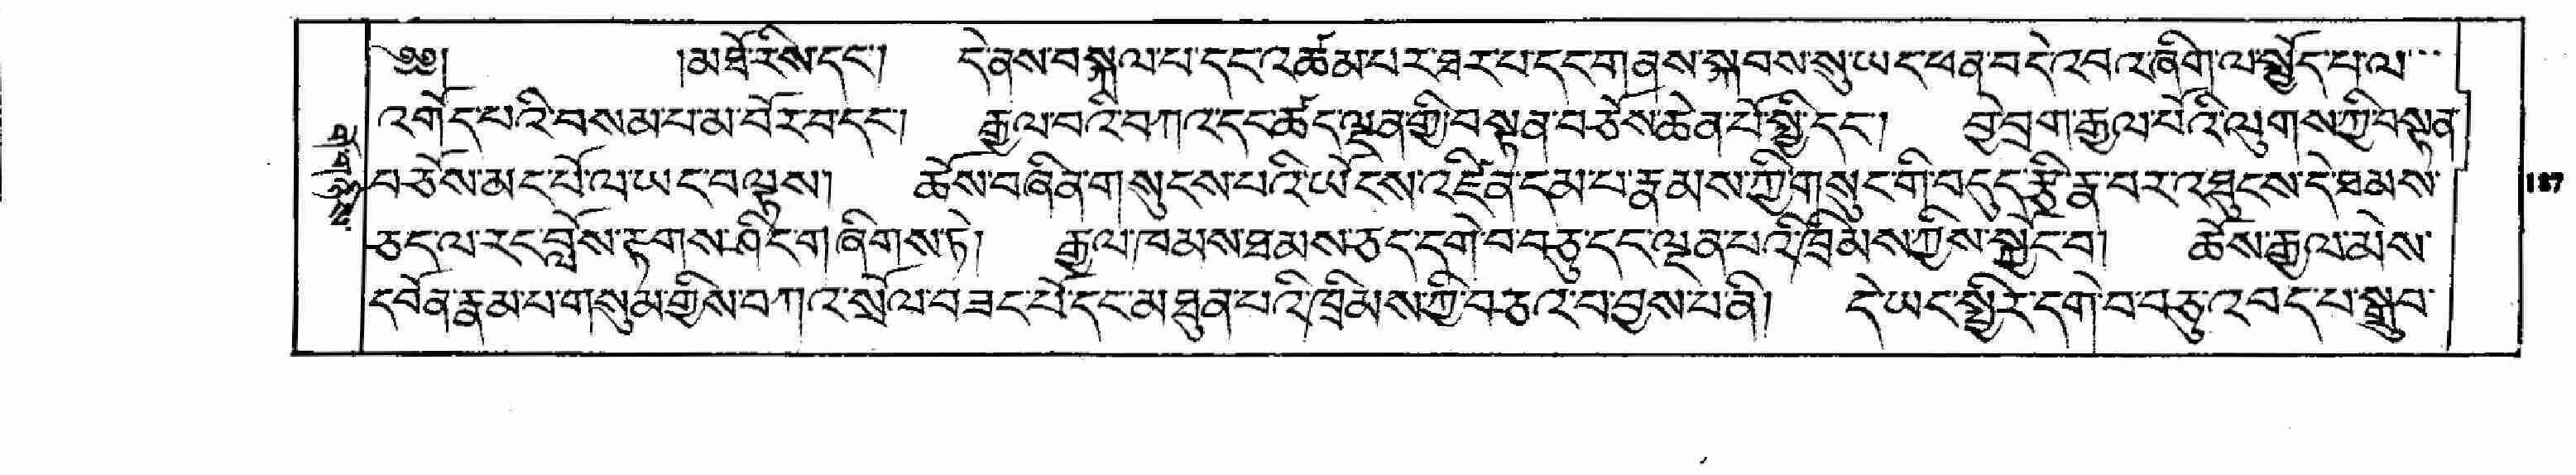 ༄༅། །མཐོ་རིས་དང་། དེ་ནས་བསྐལ་པ་དང་འཚམ་པར་ཐར་པ་དང་གནས་སྐབས་སུ་ཡང་ཕན་བདེ་འབའ་ཞིག་ལ་སྦྱོད་པ་ལ་
འགོད་པའི་བསམ་པ་མ་བོར་བ་དང་། རྒྱལ་བའི་བཀའ་དང་ཚད་ལྡན་གྱི་བསྟན་བཅོས་ཆེན་པོ་སྤྱི་དང་། བྱེ་བྲག་རྒྱལ་པོའི་ལུགས་ཀྱི་བསྟན་
བཅོས་མང་པོ་ལ་ཡང་བལྟས། ཆོས་བཞིན་གསུངས་པའི་ཡོངས་འཛིན་དམ་པ་རྣམས་ཀྱི་གསུང་གི་བདུད་རྩི་རྣ་བར་འཐུངས་དེ་ཐམས་
ཅད་ལ་རང་བློས་རྟགས་ཤིང་གཞིགས་ཏེ། རྒྱལ་ཁམས་ཐམས་ཅད་དགེ་བ་བཅུ་དང་ལྡན་པའི་ཁྲིམས་ཀྱིས་སྐྱོང་བ། ཆོས་རྒྱལ་མེས་
དབོན་རྣམ་པ་གསུམ་གྱིས་བཀའ་སྲོལ་བཟང་པོ་དང་མཐུན་པའི་ཁྲིམས་ཀྱི་བཅའ་བ་བྱས་པ་ནི། དེ་ཡང་སྤྱིར་དགེ་བ་བཅུ་འབད་པ་སྒྲུབ་
187